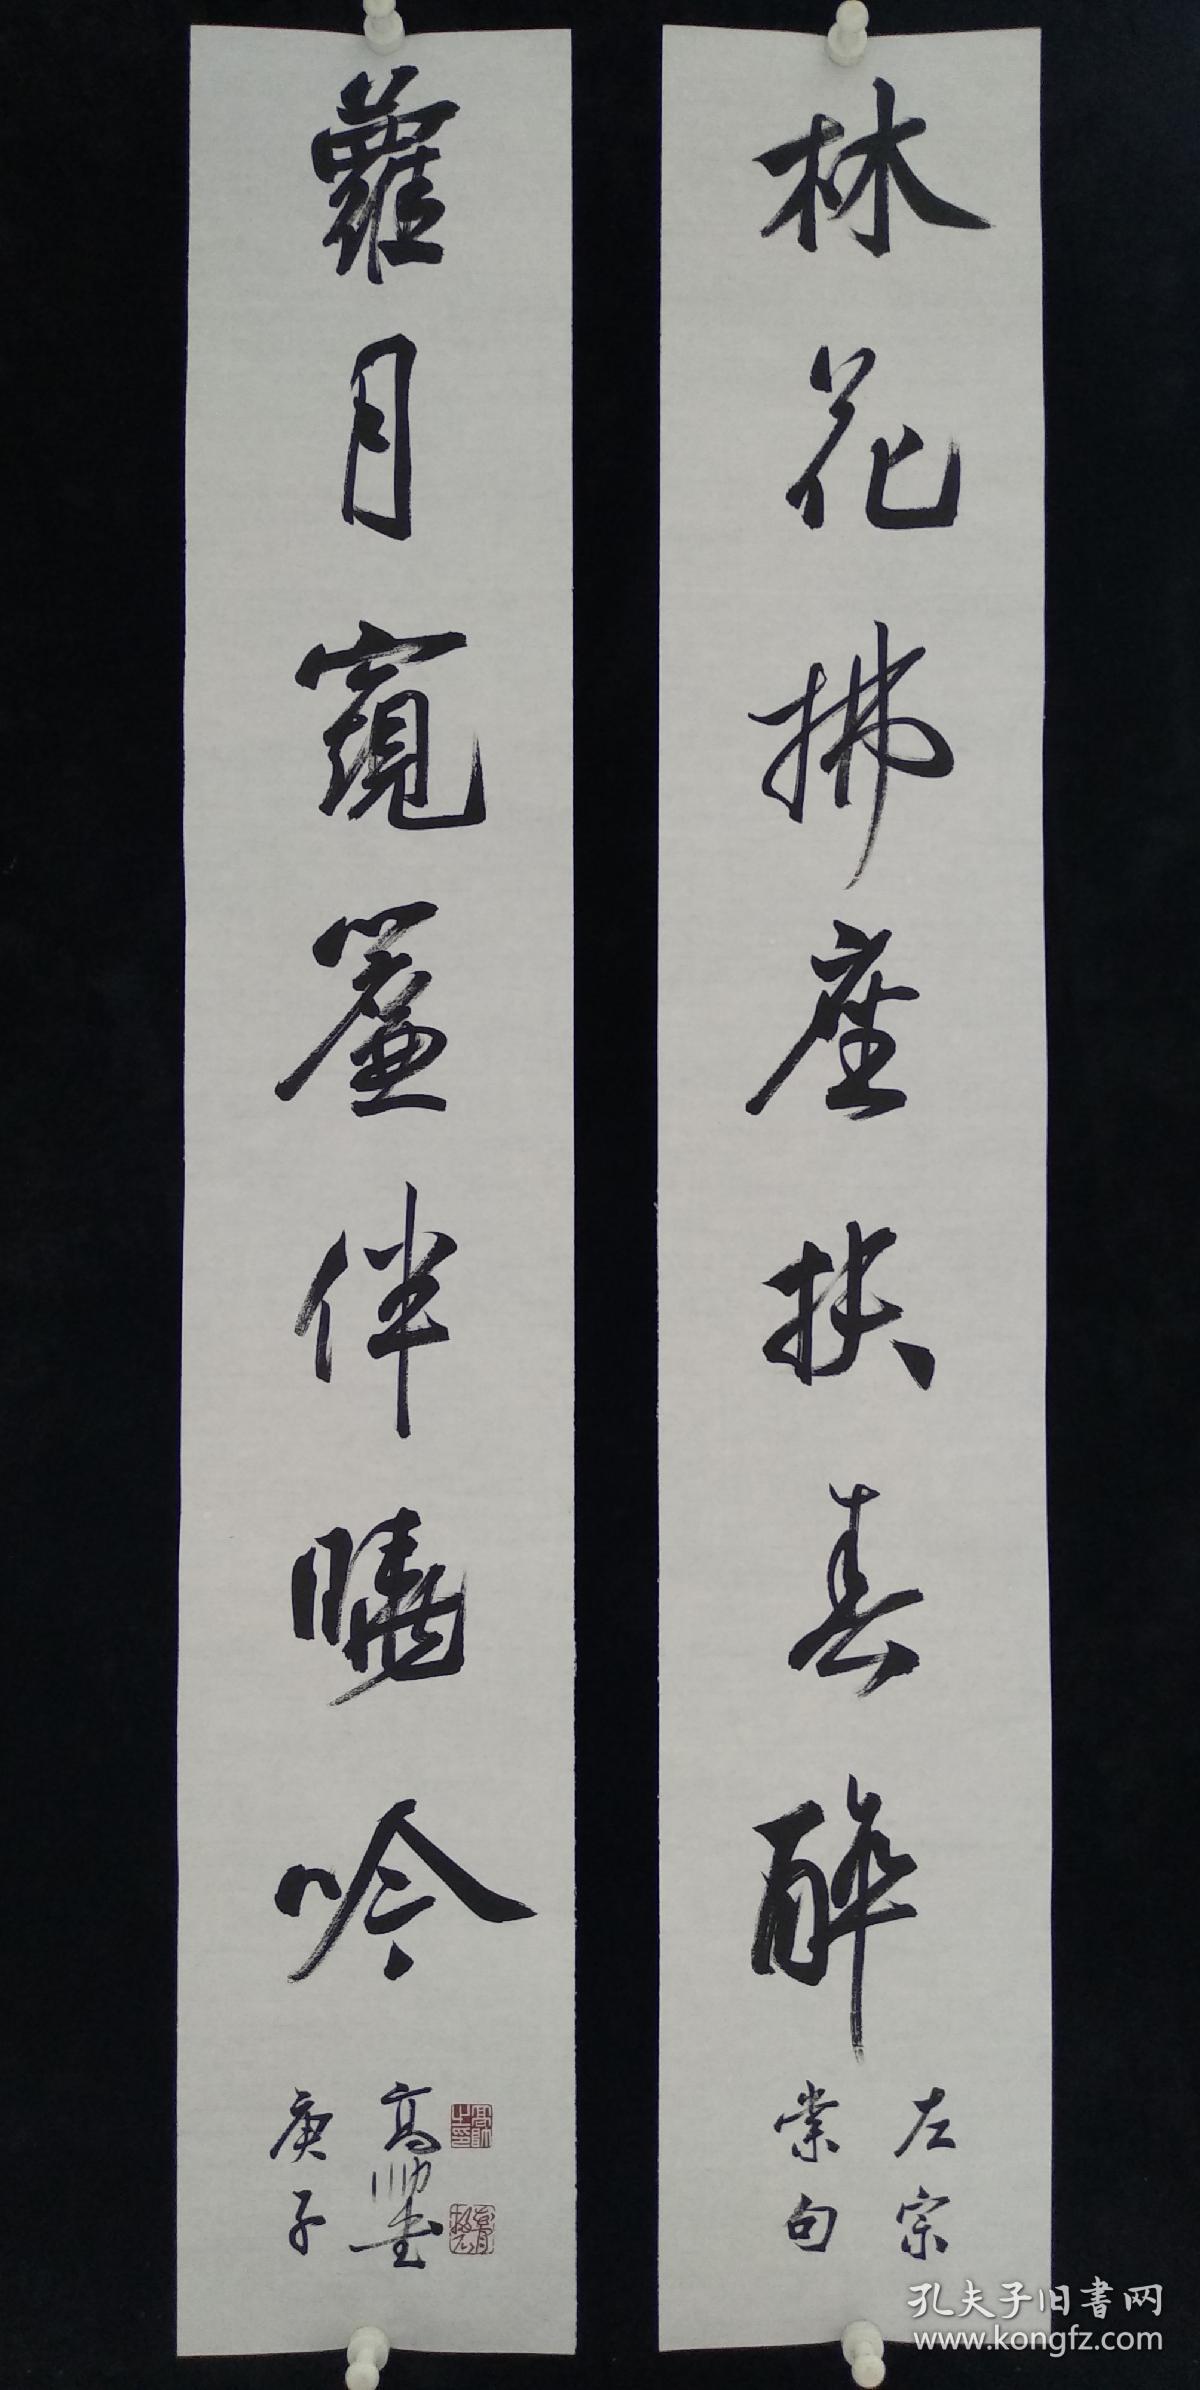 林花拂座扶春醉
左宗
棠句
蘿月窺簾伴曉吟
高帅書
庚子
孔夫子旧書网
www.kongfz.com